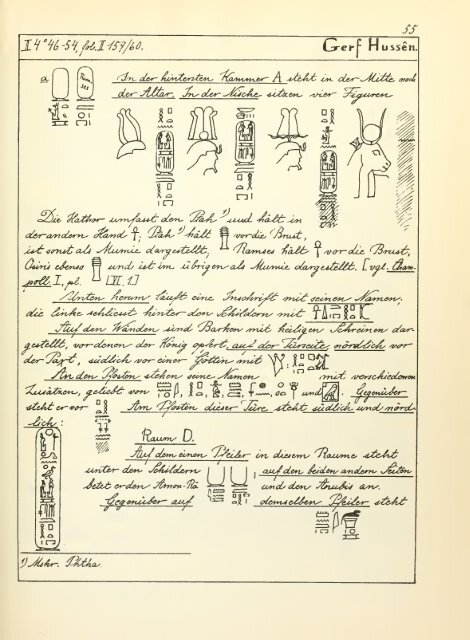 55
II 4° 46-54, fol. II 157/60.
Gerf Hussên.
a
In der hintersten Kammer A steht in der Mitte noch
der Altar. In der Nische sitzen vier Figuren
Die Hathor umfasst den Ptah ¹) und hält in
der andern Hand ☥, Ptah ¹) hält vor die Brust,
ist sonst als Mumie dargestellt, Ramses hält ☥ vor die Brust,
Osiris ebenso und ist im übrigen als Mumie dargestellt. [vgl. Cham-
poll. I, pl. [VI. 1]
Unten herum läuft eine Inschrift mit seinen Namen;
die linke schliesst hinter den Schildern mit
Auf den Wänden sind Barken mit heiligen Schreinen dar-
gestellt, vor denen der König opfert, auf der Türseite, nördlich vor
der Part, südlich vor einer Göttin mit
An den Pfosten stehen seine Namen mit verschiedenen
Zusätzen, geliebt von und . Gegenüber
steht er vor Am Pfosten dieser Türe steht südlich und nörd-
lich:
Raum D.
Auf dem einen Pfeiler in diesem Raume steht
unter den Schildern ; auf den beiden andern Seiten
betet er den Amon-Râ und den Anubis an.
Gegenüber auf demselben Pfeiler steht
¹) Mskr. Phtha.